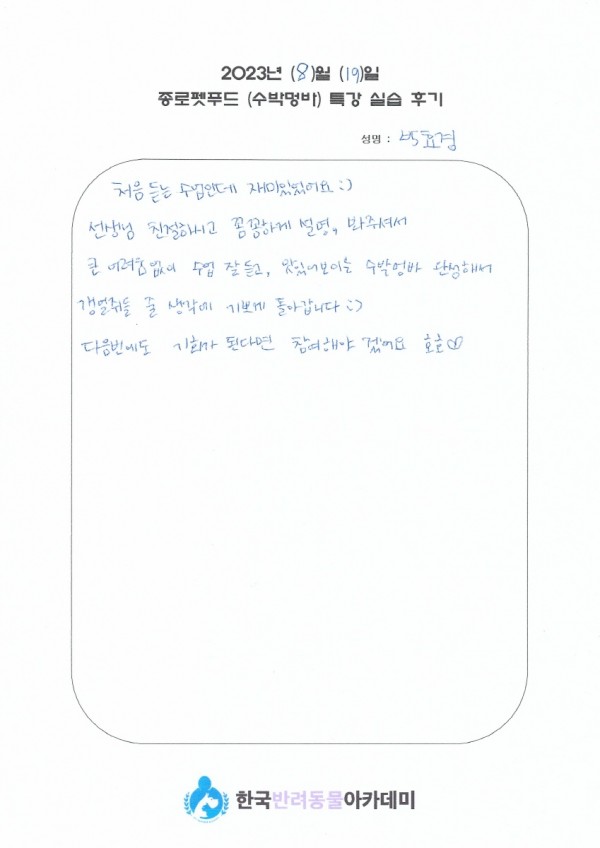 2023년 (8)월 (19)일
종로펫푸드 (수박멍바) 특강 실습 후기
성명 : 박효경
처음 듣는 수업인데 재미있었어요:)
선생님 친절하시고 꼼꼼하게 설명, 봐주셔서
큰 어려움없이 수업 잘 듣고, 맛있어보이는 수박멍바 완성해서
갱얼쥐들 줄 생각에 기쁘게 돌아갑니다:)
다음번에도 기회가 된다면 참여해야 겠어요 호호♡
한국반려동물아카데미